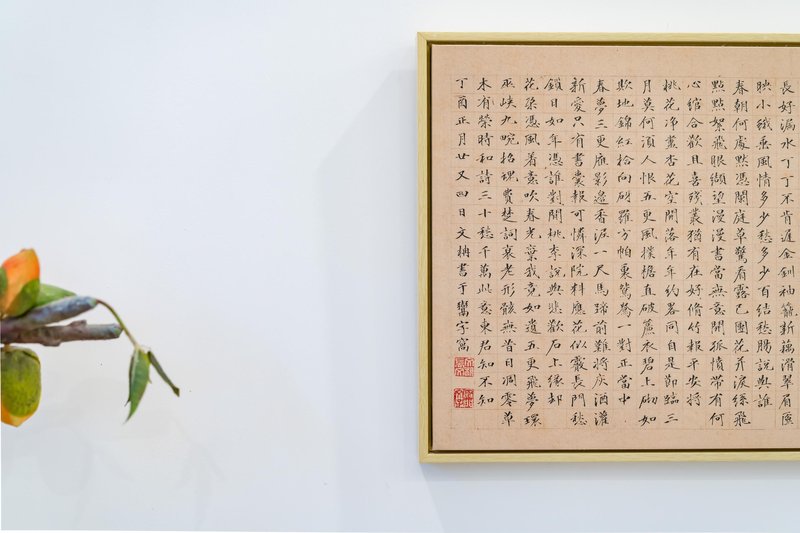 長好漏水丁丁不肯遲金釧袖籠新藕滑翠眉匳
映小蛾垂風情多少愁多少百結愁腸說與誰
春朝何處點憑闌庭草驚看露已團花并淚絲飛
點點絮飛眼纈望漫漫書當無意開孤憤帶有何
心綰合歡且喜殘叢猶有在好脩竹報平安將
桃花淨盡杏花空開落年年約畧同自是節臨三
月莫何須人恨五更風撲檐直破簾衣碧上砌如
欺地錦紅拾向砑羅方帕裹鴛鴦一對正當中
春夢三更雁影邊香泥一尺馬蹄前難將灰酒灌
新愛只有香囊報可憐深院料應花似霰長門愁
鎖日如年憑誰對閒桃李說與悲歡石上緣却
花染憑風着意吹春光棄我竟如遺五更飛夢環
巫峽九畹招魂費楚詞衰老形骸無昔日凋零草
木有榮時和詩三十愁千萬此意東君知不知
丁酉正月廿又四日文柟書于字窩